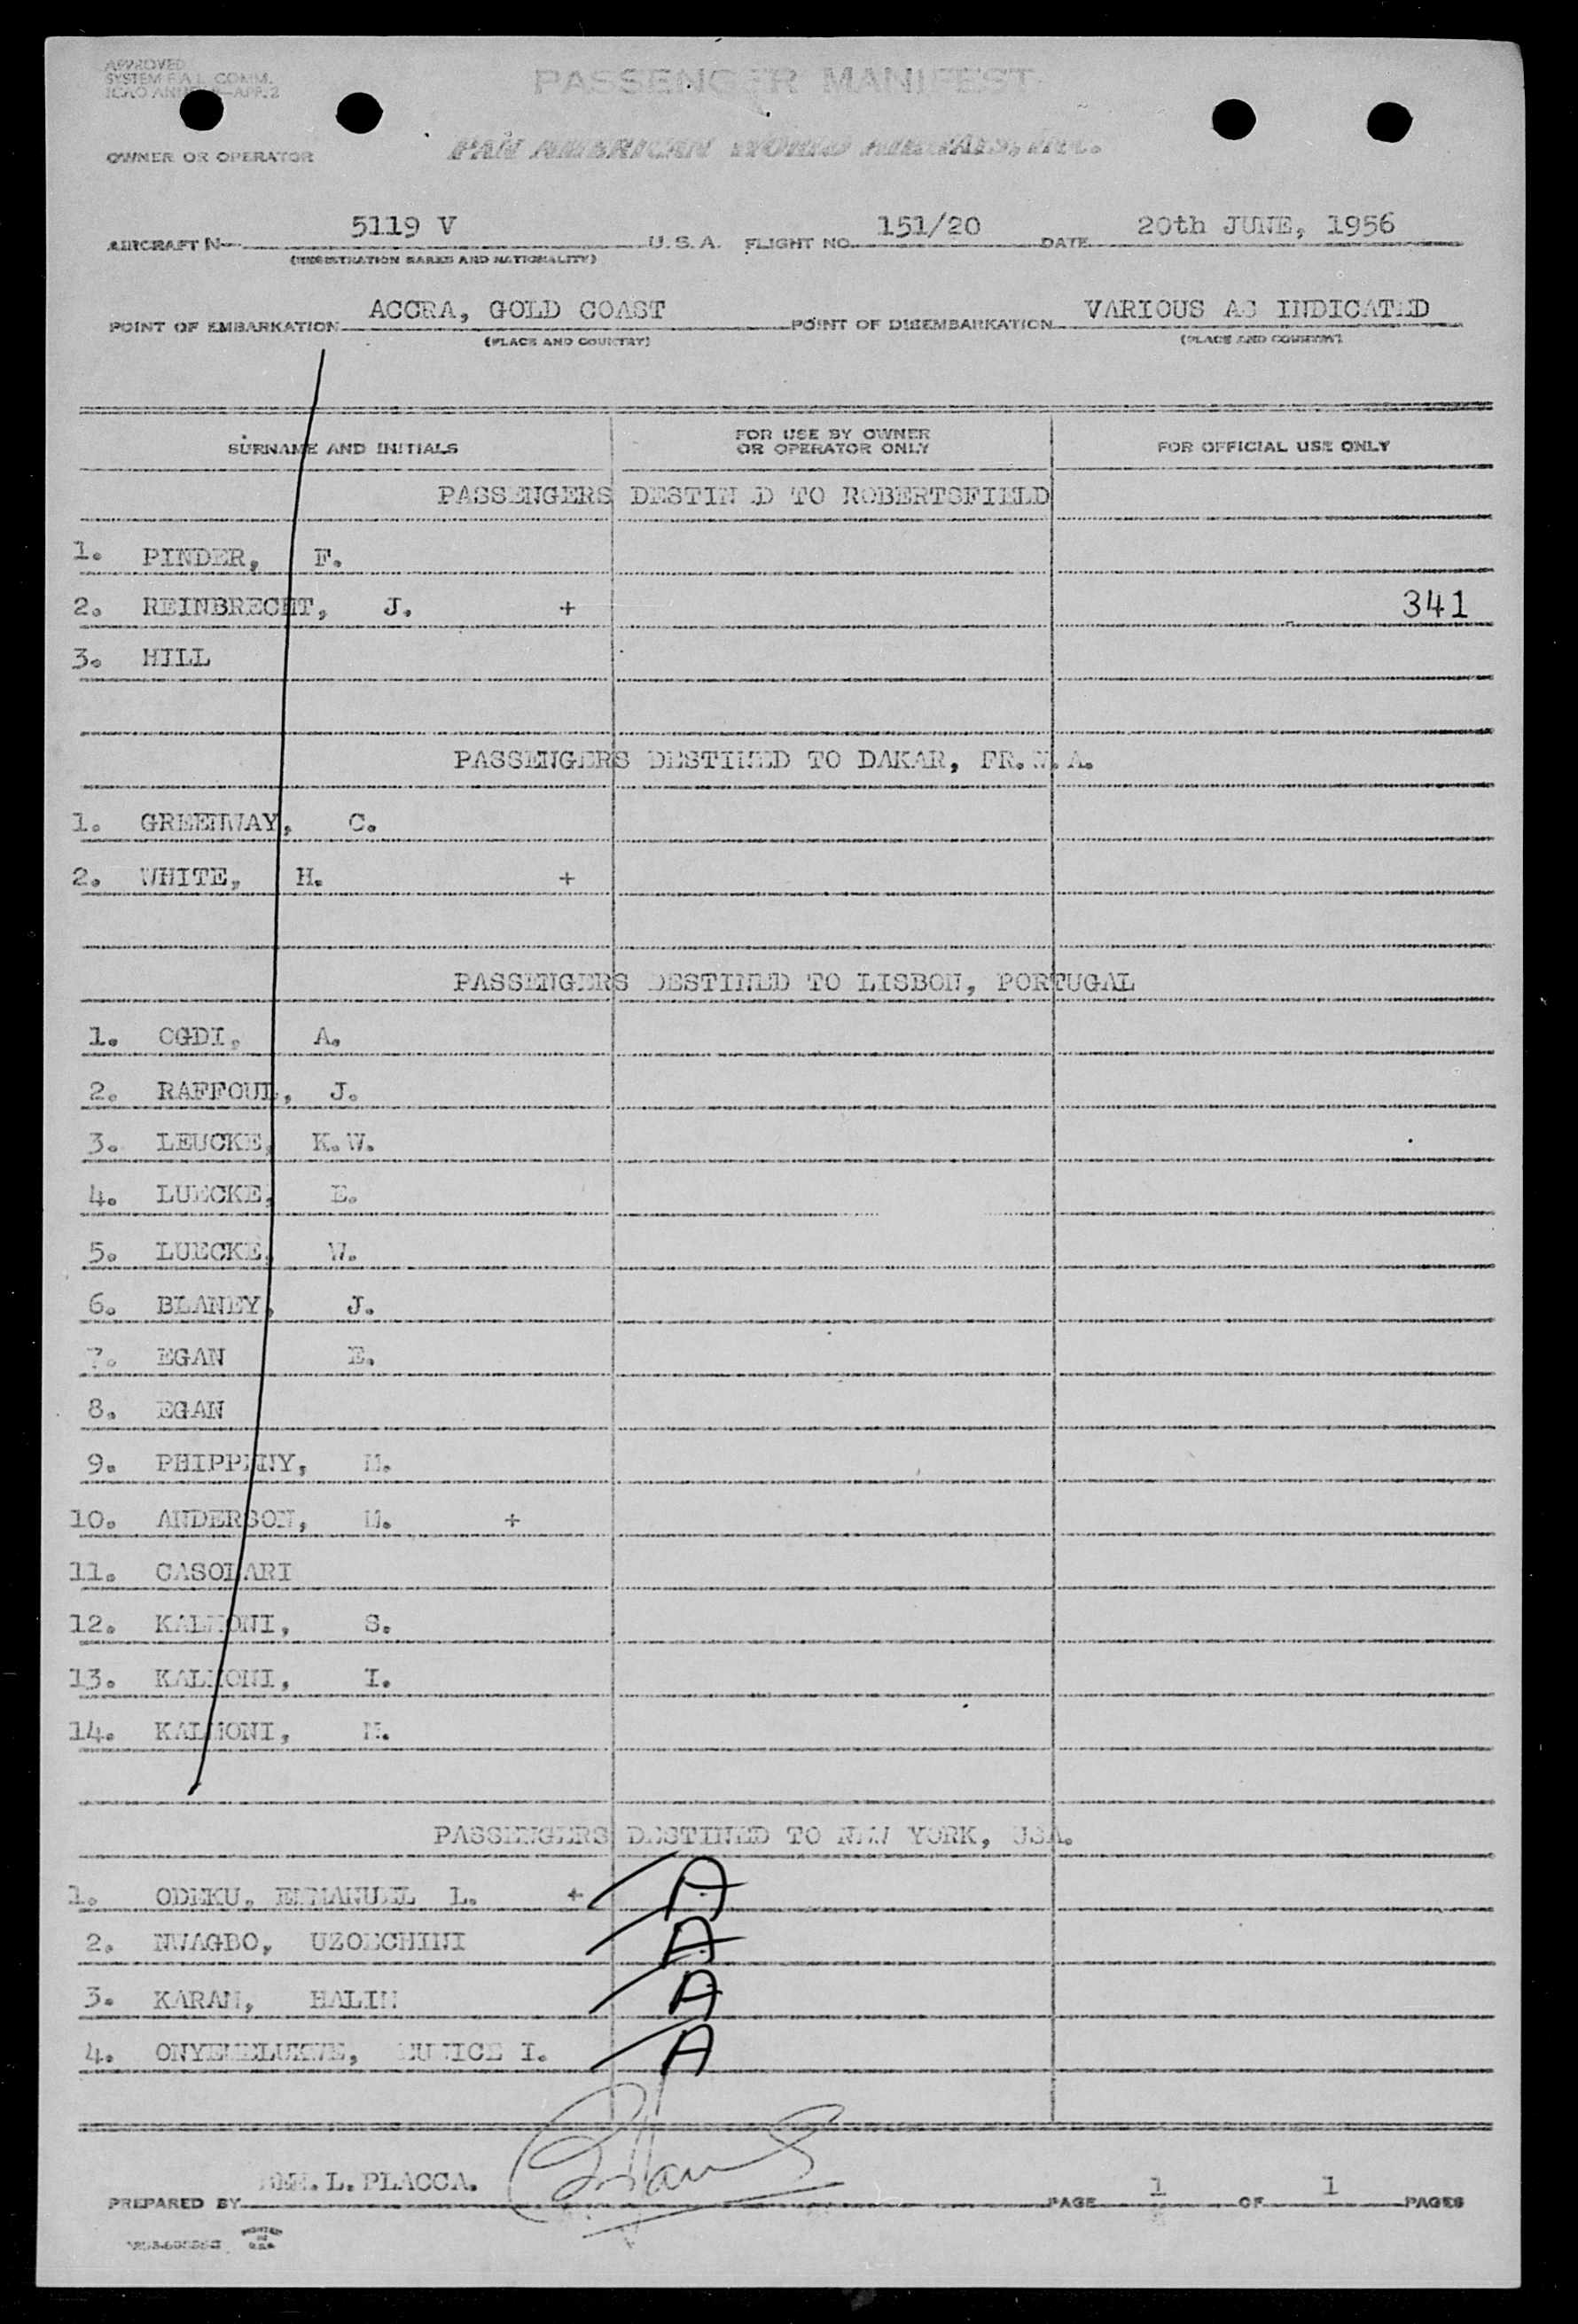 APPROVED
SYSTEM F.A.L. COMM.
ICAO ANNEX —APP. 2
PASSENGER MANIFEST
OWNER OR OPERATOR PAN AMERICAN WORLD AIRWAYS, INC.
AIRCRAFT N— 5119 V U. S. A. FLIGHT NO. 151/20 DATE 20th JUNE, 1956
(REGISTRATION MARKS AND NATIONALITY)
POINT OF EMBARKATION ACCRA, GOLD COAST POINT OF DISEMBARKATION VARIOUS AS INDICATED
(PLACE AND COUNTRY) (PLACE AND COUNTRY)
SURNAME AND INITIALS FOR USE BY OWNER OR OPERATOR ONLY FOR OFFICIAL USE ONLY
PASSENGERS DESTINED TO ROBERTSFIELD
1. PINDER, F.
2. REINBRECHT, J. + 341
3. HILL
PASSENGERS DESTINED TO DAKAR, FR.W.A.
1. GREENWAY, C.
2. WHITE, H. +
PASSENGERS DESTINED TO LISBON, PORTUGAL
1. OGDI, A.
2. RAFFOUL, J.
3. LEUCKE, K.W.
4. LUECKE, E.
5. LUECKE, W.
6. BLANEY, J.
7. EGAN E.
8. EGAN
9. PHIPPENY, M.
10. ANDERSON, M. +
11. CASOLARI
12. KALMONI, S.
13. KALMONI, I.
14. KALMONI, M.
PASSENGERS DESTINED TO NEW YORK, USA.
1. ODEKU, EMMANUEL L. + A
2. NWAGBO, UZOECHINI A
3. KARAM, HALIM A
4. ONYEMELUKWE, EUNICE I. A
PREPARED BY L. PLACCA. PAGE 1 OF 1 PAGES
PRINTED IN U.S.A.